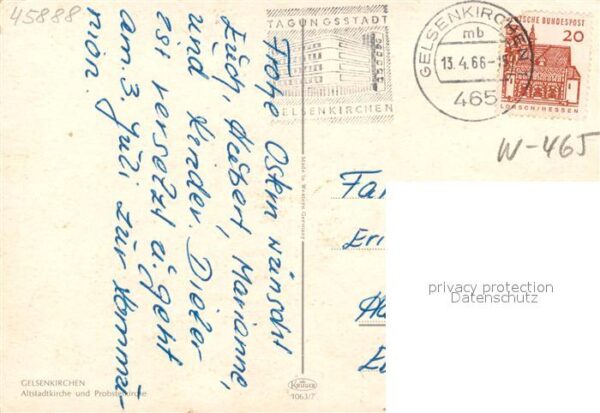 45888
TAGUNGSSTADT
GELSENKIRCHEN
GELSENKIRCHEN
mb
13.4.66
465
DEUTSCHE BUNDESPOST
20
LORSCH/HESSEN
W-465
Frohe Ostern wünscht
Euch, Hubert, Marianne,
und Kinder. Dieter
ist versetzt u. geht
am 3. Juli zur Kommu-
nion.
Made in Western Germany
Fa
privacy protection
Datenschutz
GELSENKIRCHEN
Altstadtkirche und Probsteikirche
Krüger
1063/7